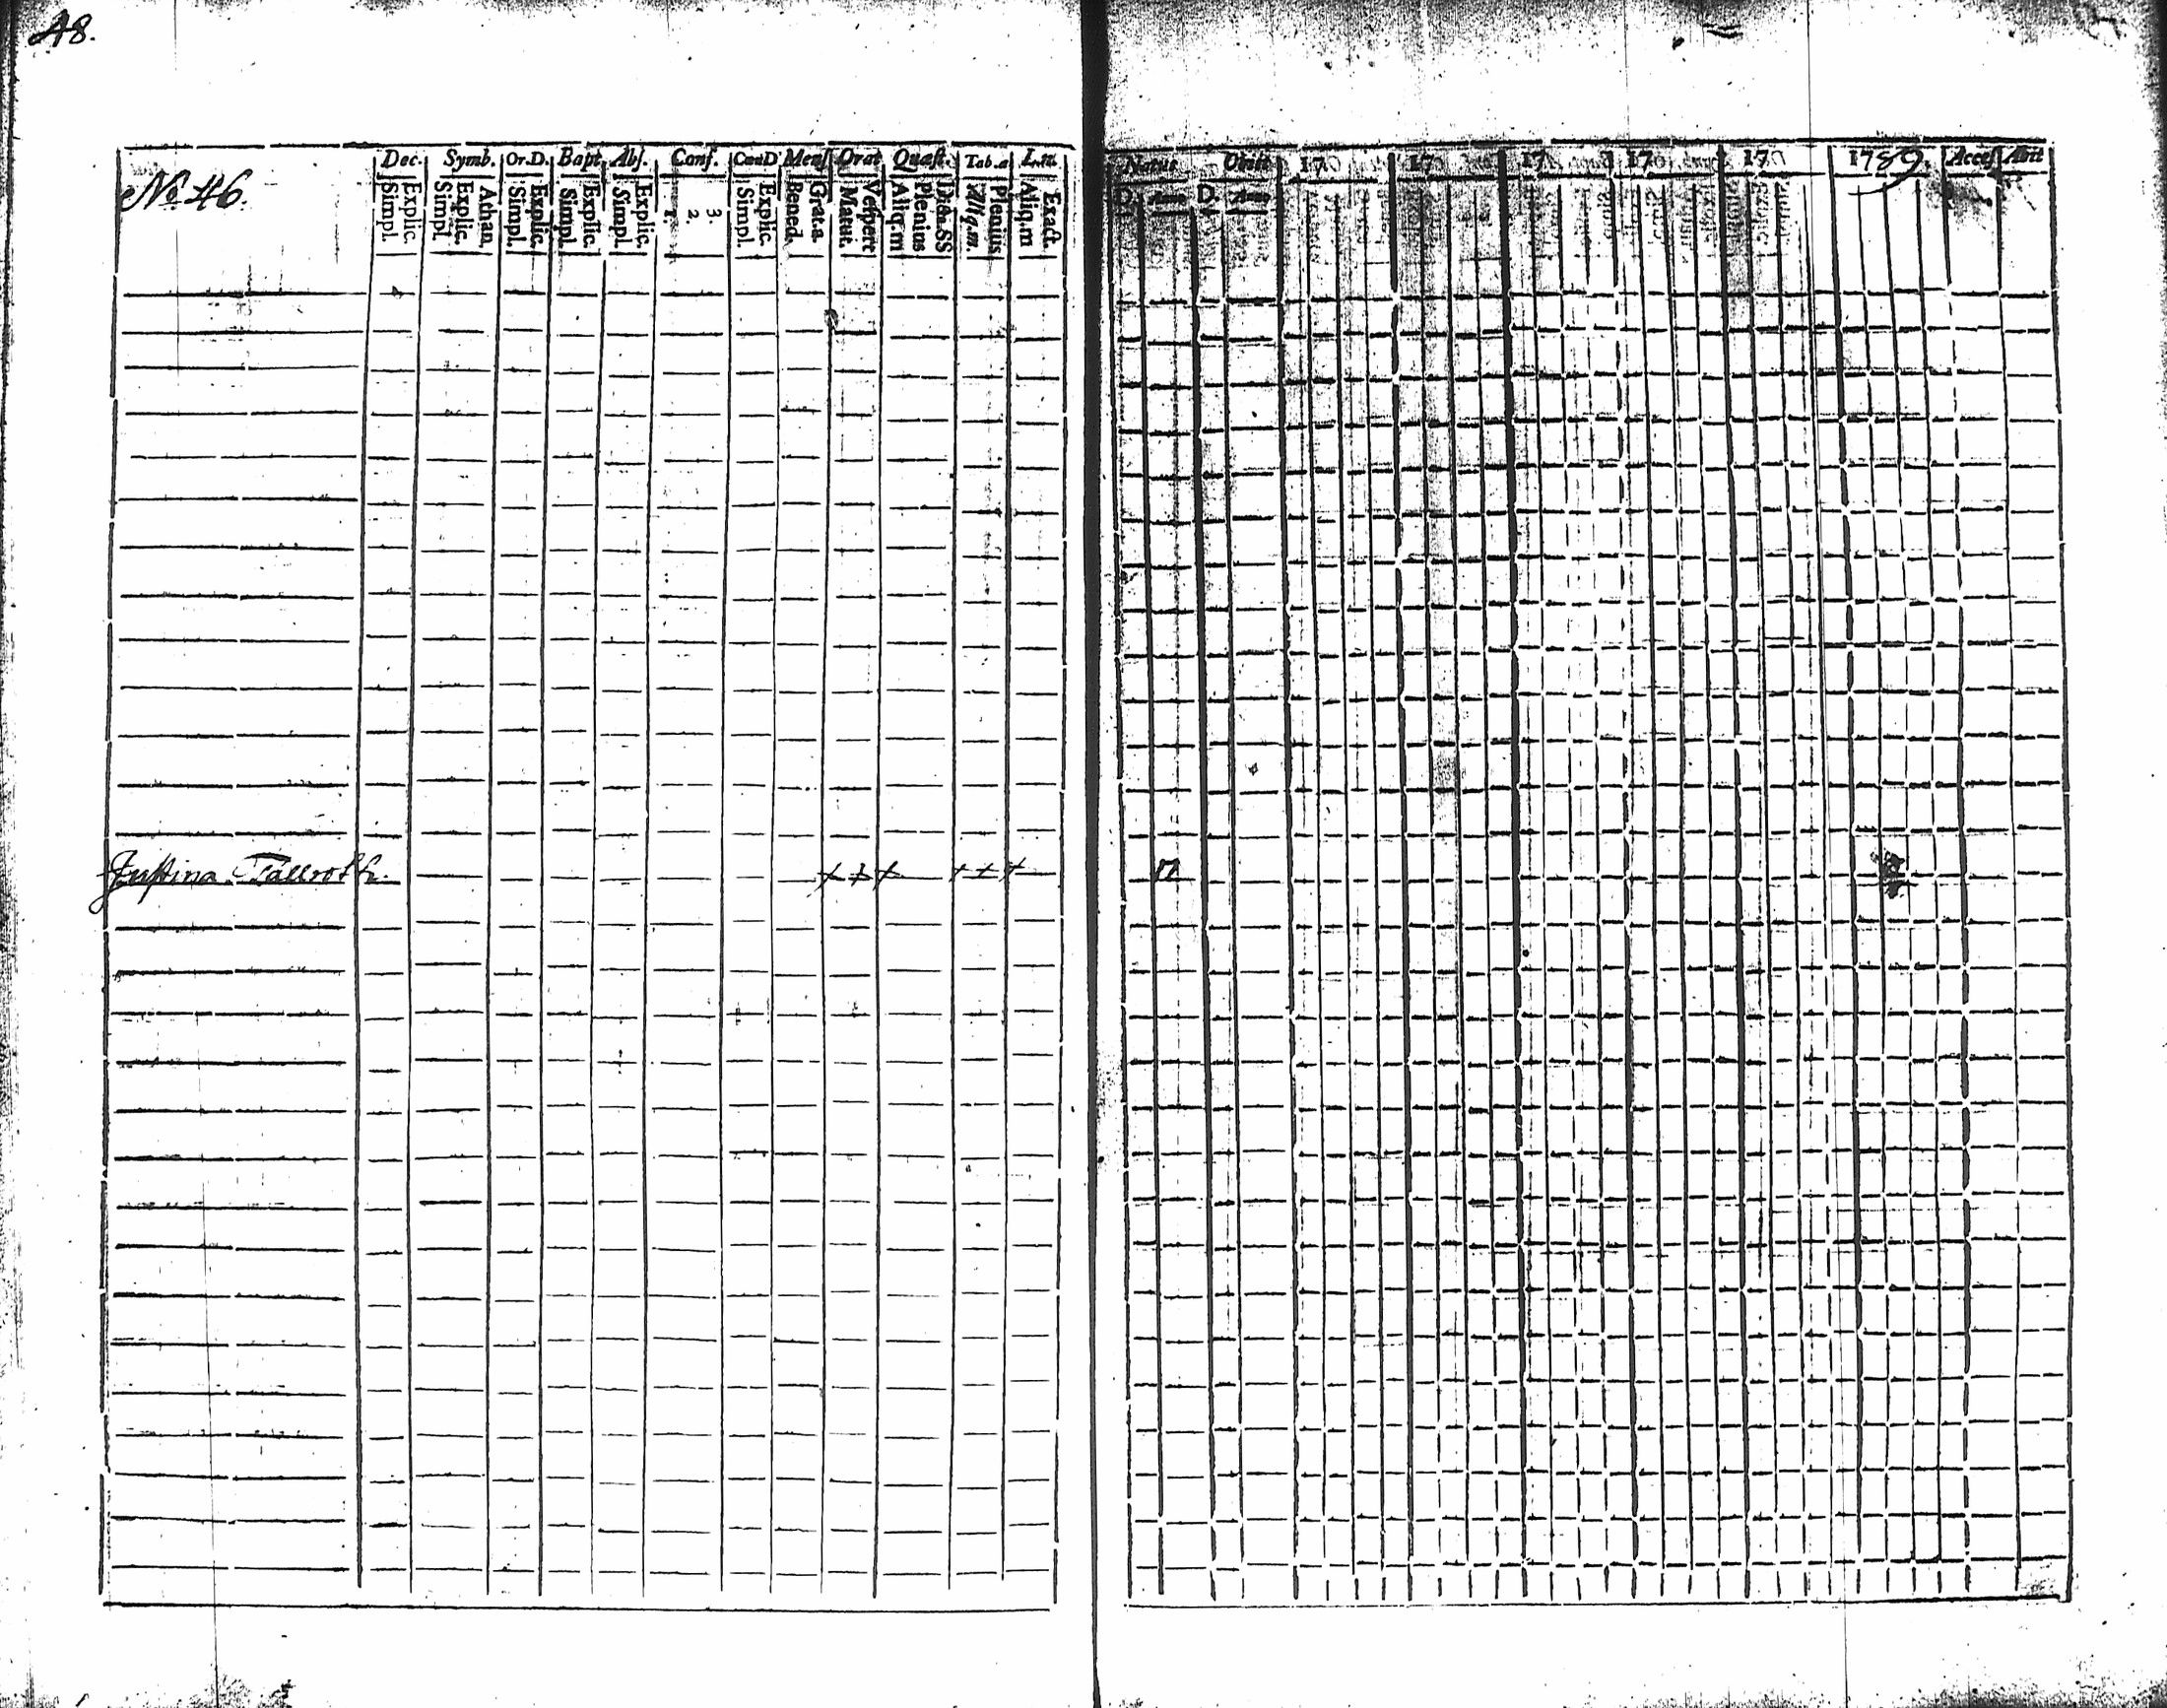 48.
Dec. Symb. Or.D. Bapt. Abs. Conf. Cœn.D Mens Orat Quæst. Tab.a
Natus Obiit 17 17 17 17 17 1789. Access Abit
No. 46.
Simpl. Explic. Simpl. Explic. Athan. Simpl. Explic. Simpl. Explic. Simpl. Explic. 1. 2. 3. Simpl. Explic. Bened. Grat.a. Matut. Vespert Aliq.m Plenius Dicta.SS Aliq.m. Plenius Aliq.m Exact.
D. Anno D. Anno
Justina Tallroth. + + + + + +